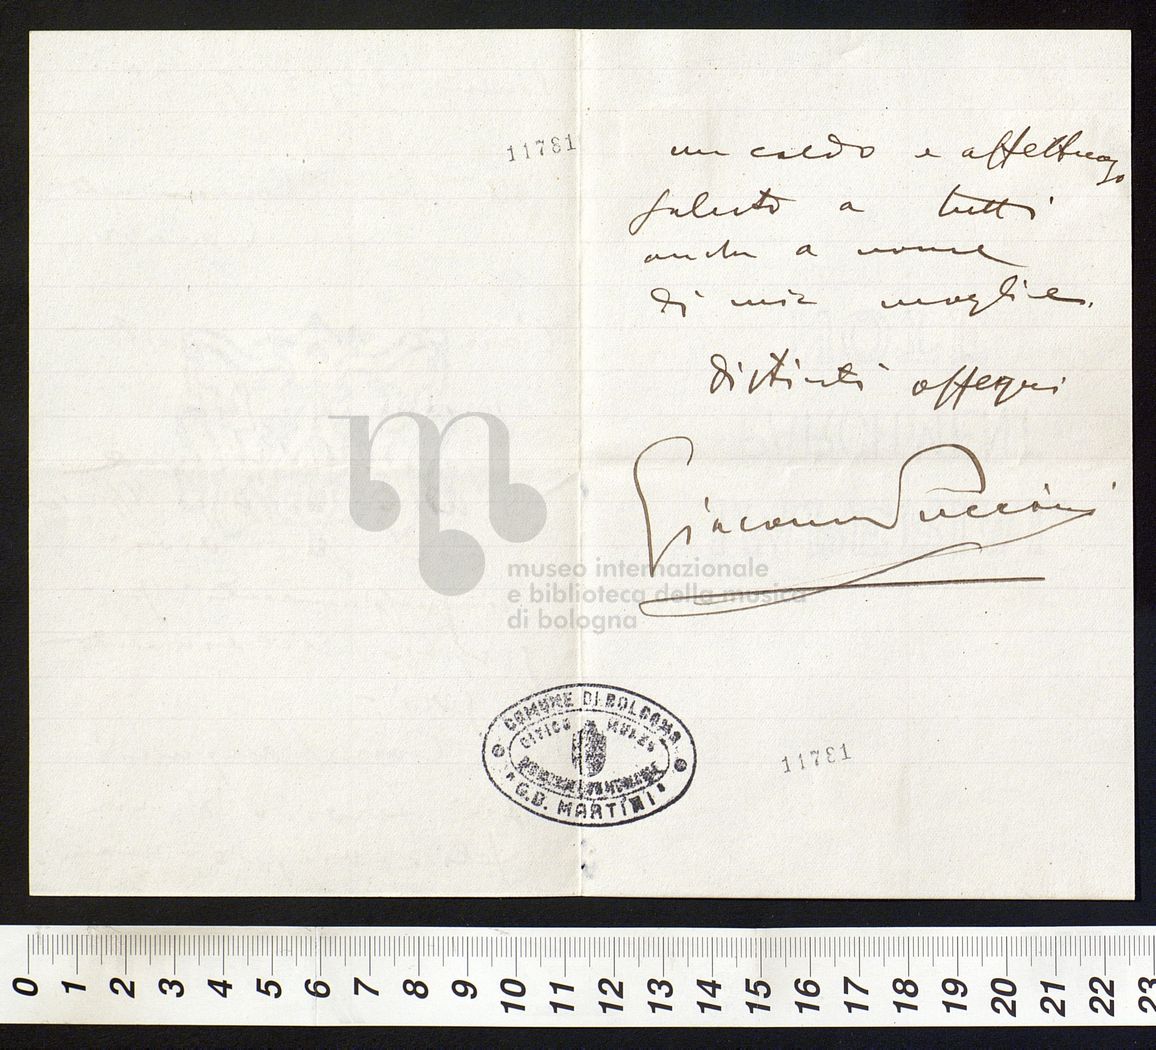 11781
un caldo e affettuoso
saluto a tutti
anche a nome
di mia moglie.
distinti ossequi
Giacomo Puccini
museo internazionale
e biblioteca della musica
di bologna
COMUNE DI BOLOGNA
CIVICO MUSEO
BIBLIOGRAFICO MUSICALE
"G.B. MARTINI"
11781
0 1 2 3 4 5 6 7 8 9 10 11 12 13 14 15 16 17 18 19 20 21 22 23